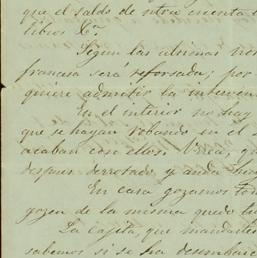 que el saldo de ntra cuenta
libros &ª
Segun las ultimas
francesa será reforsada; por
quiere admitir la interven
En el interior no hay
que se hayan robando en el
acaban con ellos.
despues derrotado y anda
En casa gozamos
gozen de la misma quedo
La cajita, que mandaste
sabemos si se ha desembarc